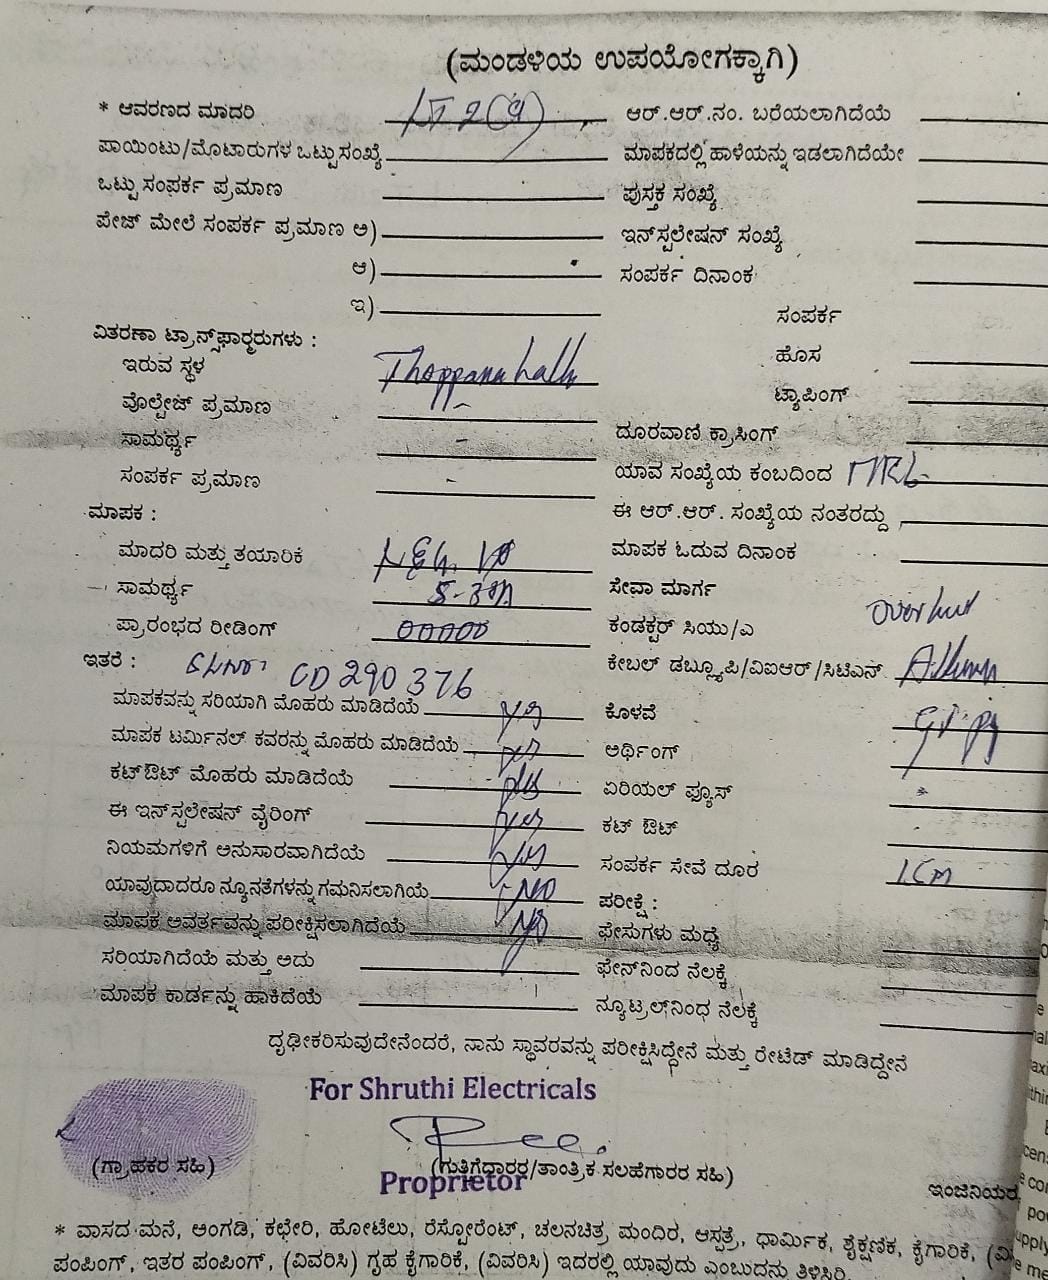 (ಮಂಡಳಿಯ ಉಪಯೋಗಕ್ಕಾಗಿ)
* ಆವರಣದ ಮಾದರಿ LT 2(a) ಆರ್.ಆರ್.ನಂ. ಬರೆಯಲಾಗಿದೆಯೆ
ಪಾಯಿಂಟು/ಮೊಟಾರುಗಳ ಒಟ್ಟು ಸಂಖ್ಯೆ ಮಾಪಕದಲ್ಲಿ ಹಾಳೆಯನ್ನು ಇಡಲಾಗಿದೆಯೇ
ಒಟ್ಟು ಸಂಪರ್ಕ ಪ್ರಮಾಣ ಪುಸ್ತಕ ಸಂಖ್ಯೆ
ಪೇಜ್ ಮೇಲೆ ಸಂಪರ್ಕ ಪ್ರಮಾಣ ಅ) ಇನ್‌ಸ್ಪಲೇಷನ್ ಸಂಖ್ಯೆ
ಆ) ಸಂಪರ್ಕ ದಿನಾಂಕ
ಇ) ಸಂಪರ್ಕ
ವಿತರಣಾ ಟ್ರಾನ್ಸ್‌ಫಾರ್‍ಮರುಗಳು :
ಇರುವ ಸ್ಥಳ Thoppanahalli ಹೊಸ
ವೊಲ್ಟೇಜ್ ಪ್ರಮಾಣ - ಟ್ಯಾಪಿಂಗ್
ಸಾಮರ್ಥ್ಯ - ದೂರವಾಣಿ ಕ್ರಾಸಿಂಗ್
ಸಂಪರ್ಕ ಪ್ರಮಾಣ - ಯಾವ ಸಂಖ್ಯೆಯ ಕಂಬದಿಂದ
ಮಾಪಕ : ಈ ಆರ್.ಆರ್. ಸಂಖ್ಯೆಯ ನಂತರದ್ದು
ಮಾದರಿ ಮತ್ತು ತಯಾರಿಕೆ ಮಾಪಕ ಓದುವ ದಿನಾಂಕ
ಸಾಮರ್ಥ್ಯ 5-30A ಸೇವಾ ಮಾರ್ಗ
ಪ್ರಾರಂಭದ ರೀಡಿಂಗ್ 00000 ಕಂಡಕ್ಟರ್ ಸಿಯು/ಎ
ಇತರೆ : CD 290376 ಕೇಬಲ್ ಡಬ್ಲ್ಯೂಪಿ/ವಿಐಆರ್/ಸಿಟಿಎಸ್
ಮಾಪಕವನ್ನು ಸರಿಯಾಗಿ ಮೊಹರು ಮಾಡಿದೆಯೆ yes ಕೊಳವೆ
ಮಾಪಕ ಟರ್ಮಿನಲ್ ಕವರನ್ನು ಮೊಹರು ಮಾಡಿದೆಯೆ yes ಅರ್ಥಿಂಗ್
ಕಟ್‌ಔಟ್ ಮೊಹರು ಮಾಡಿದೆಯೆ yes ಏರಿಯಲ್ ಫ್ಯೂಸ್
ಈ ಇನ್‌ಸ್ಪಲೇಷನ್ ವೈರಿಂಗ್ yes ಕಟ್ ಔಟ್
ನಿಯಮಗಳಿಗೆ ಅನುಸಾರವಾಗಿದೆಯೆ yes ಸಂಪರ್ಕ ಸೇವೆ ದೂರ
ಯಾವುದಾದರೂ ನ್ಯೂನತೆಗಳನ್ನು ಗಮನಿಸಲಾಗಿಯೆ NO ಪರೀಕ್ಷೆ :
ಮಾಪಕ ಅವರ್ತವನ್ನು ಪರೀಕ್ಷಿಸಲಾಗಿದೆಯೆ yes ಫೇಸುಗಳು ಮಧ್ಯೆ
ಸರಿಯಾಗಿದೆಯೆ ಮತ್ತು ಅದು ಫೇಸ್‌ನಿಂದ ನೆಲಕ್ಕೆ
ಮಾಪಕ ಕಾರ್ಡನ್ನು ಹಾಕಿದೆಯೆ ನ್ಯೂಟ್ರಲ್‌ನಿಂಧ ನೆಲಕ್ಕೆ
ದೃಢೀಕರಿಸುವುದೇನೆಂದರೆ, ನಾನು ಸ್ಥಾವರವನ್ನು ಪರೀಕ್ಷಿಸಿದ್ದೇನೆ ಮತ್ತು ರೇಟೆಡ್ ಮಾಡಿದ್ದೇನೆ
For Shruthi Electricals
(ಗ್ರಾಹಕರ ಸಹಿ) (ಗುತ್ತಿಗೆಧಾರರ/ತಾಂತ್ರಿಕ ಸಲಹೆಗಾರರ ಸಹಿ)
Proprietor
ಇಂಜಿನಿಯರ
* ವಾಸದ ಮನೆ, ಅಂಗಡಿ, ಕಛೇರಿ, ಹೋಟೆಲು, ರೆಸ್ಟೋರೆಂಟ್, ಚಲನಚಿತ್ರ ಮಂದಿರ, ಆಸ್ಪತ್ರೆ, ಧಾರ್ಮಿಕ, ಶೈಕ್ಷಣಿಕ, ಕೈಗಾರಿಕೆ,
ಪಂಪಿಂಗ್, ಇತರ ಪಂಪಿಂಗ್, (ವಿವರಿಸಿ) ಗೃಹ ಕೈಗಾರಿಕೆ, (ವಿವರಿಸಿ) ಇದರಲ್ಲಿ ಯಾವುದು ಎಂಬುದನು ತಿಳಿಸಿರಿ.